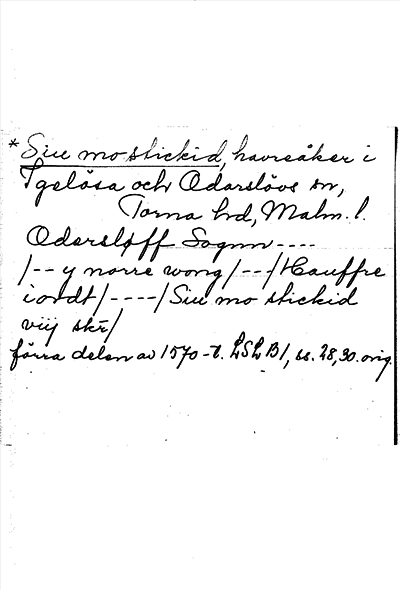 * Siu mo stickid, havreåker i
Igelösa och Odarslövs sn,
Torna hd, Malm. l.
Odersløff Sognn ----
/-- y nørre wong /---/ Hauffre
iordt /----/ Siu mo stickid
viij skr̄/
förra delen av 1570-t. LSLB1, ss. 28, 30. orig.